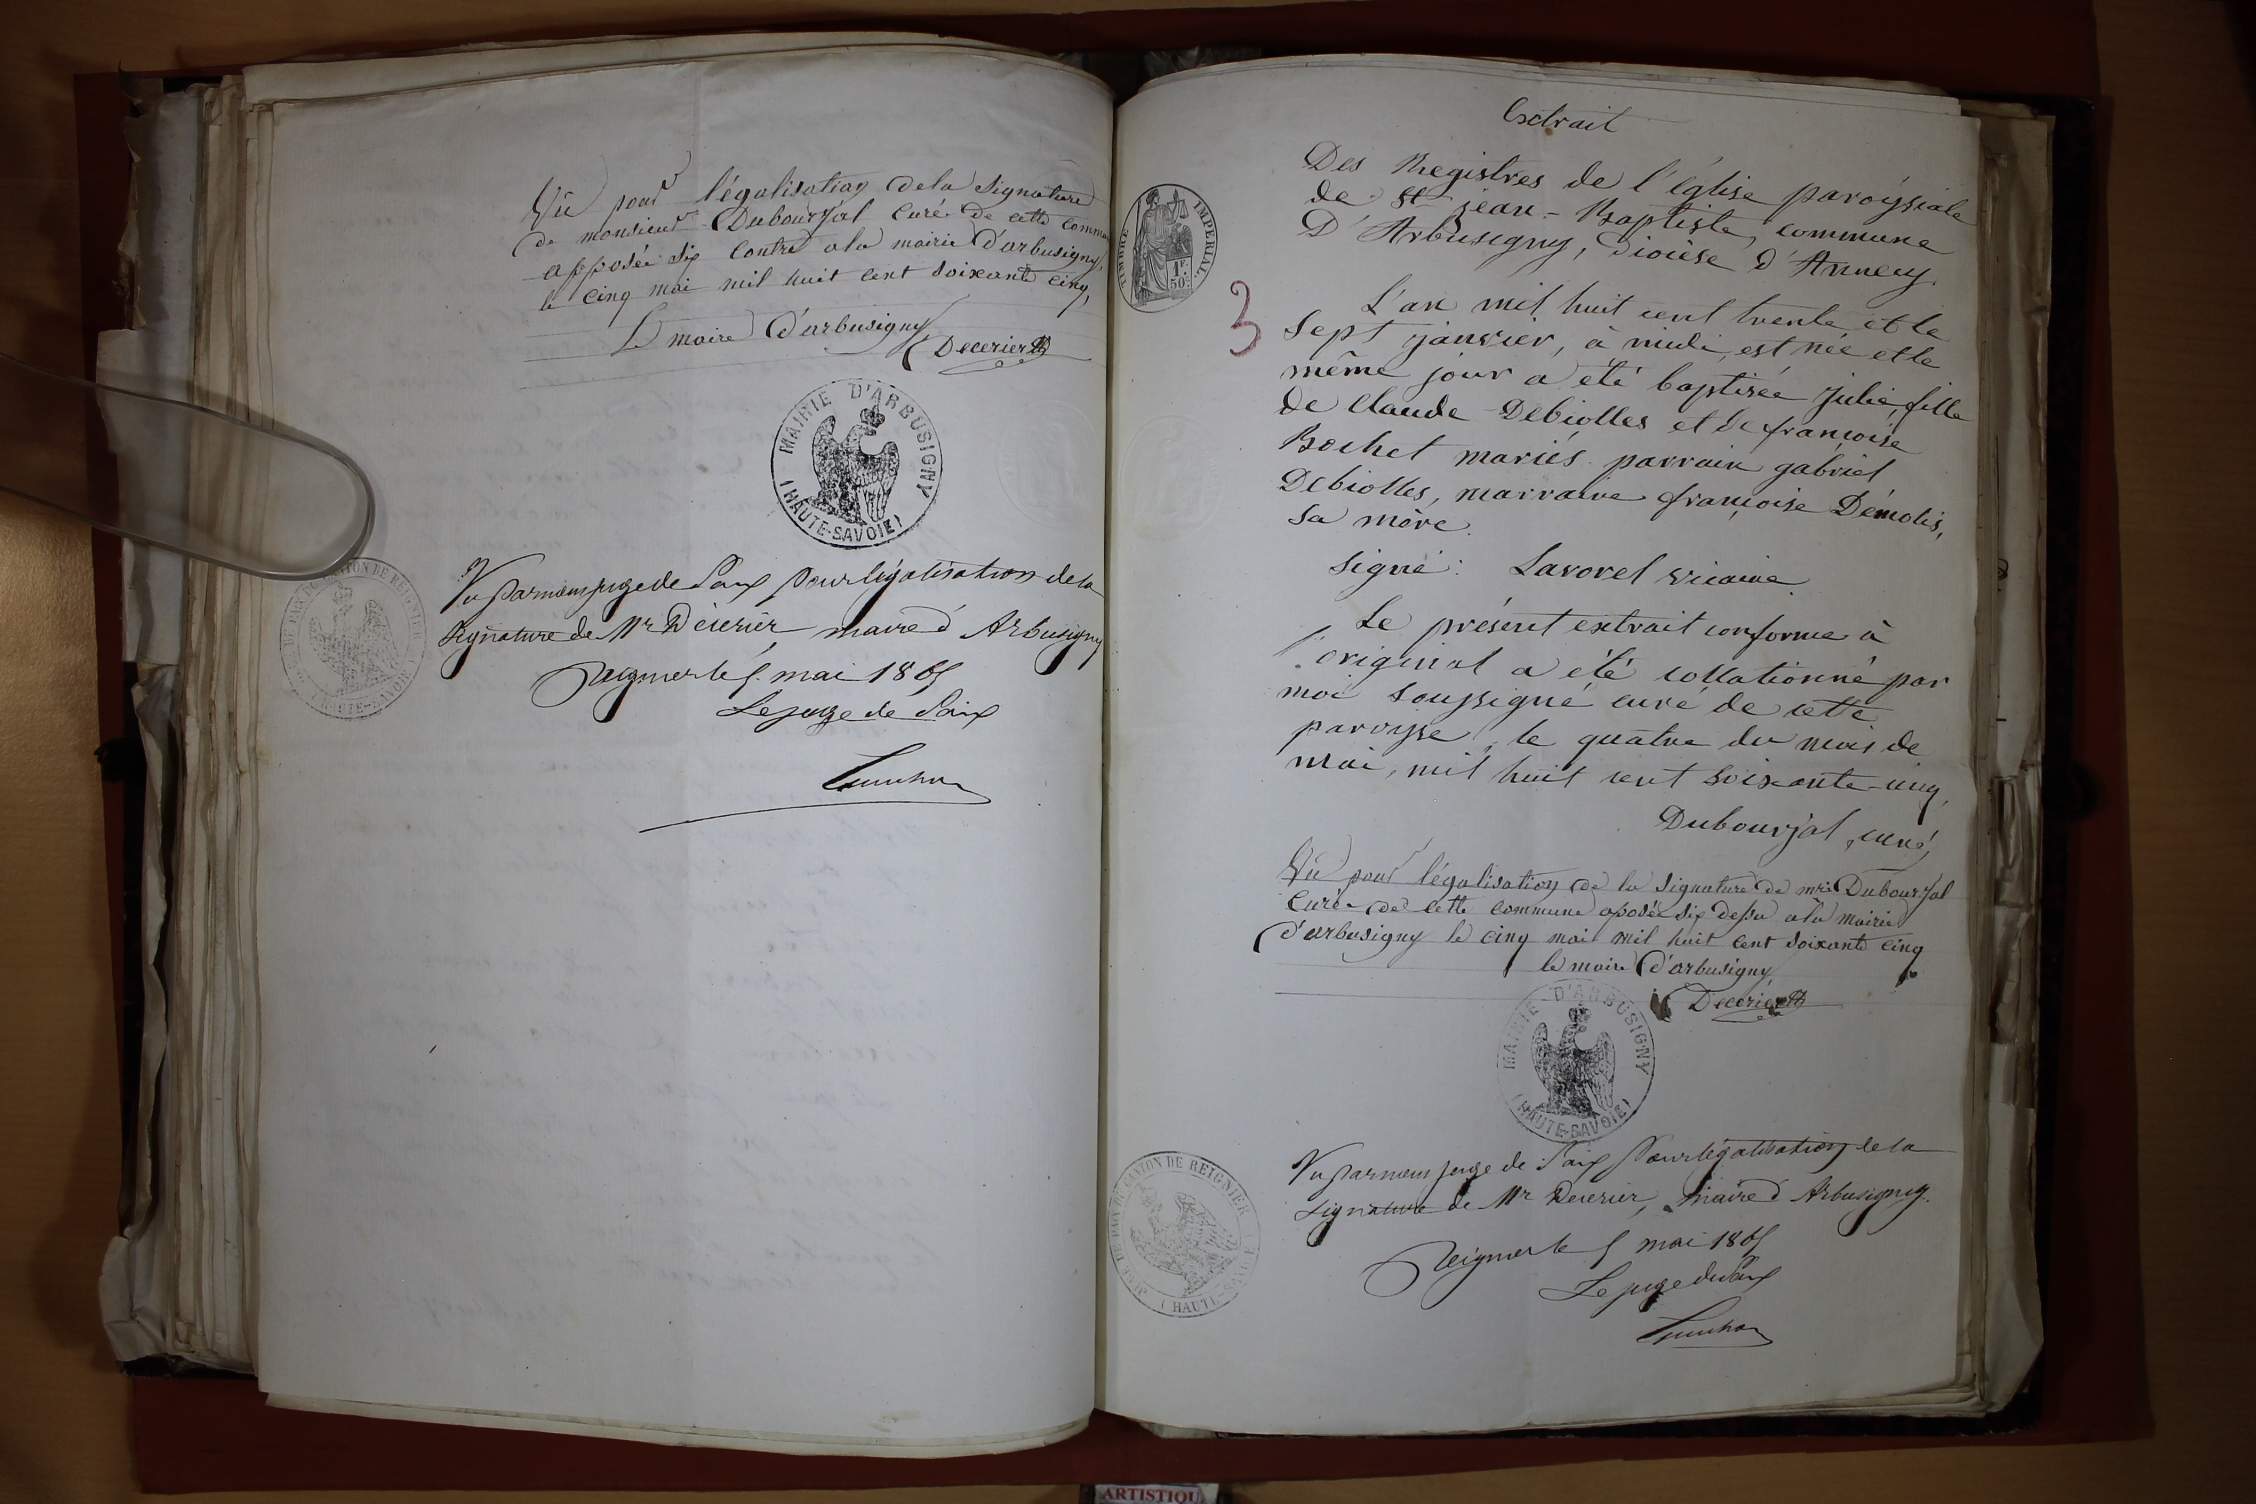 Vû pour légalisation de la signature
de monsieur Dubourjal curé de cette commu
apposée six contre a la mairie d'arbusigny,
le cinq mai mil huit cent soixante cinq,
Le maire d'arbusigny
Decerier
MAIRIE D'ARBUSIGNY
(HAUTE-SAVOIE)
Vu par nous juge de Paix pour légalisation de la
signature de Mr Décerier, maire d'Arbusigny
Reignier le 5 mai 1865
Le juge de Paix
DE PAIX DU CANTON DE REIGNIER
(HAUTE-SAVOIE)
TIMBRE IMPERIAL
1F.
50c.
3
Extrait
Des Registres de l'église paroyssiale
de St jean-Baptiste, commune
D'Arbusigny, Diocèse d'Annecy.
L'an mil huit cent trente et le
sept janvier, à midi, est née et le
même jour a été baptisée Julie, fille
de Claude Debiolles et de françoise
Bochet mariés. parrain gabriel
Debiolles, marraine françoise Démolis,
sa mère.
signé: Lavorel vicaire.
Le présent extrait conforme à
l'original a été collationné par
moi soussigné curé de cette
paroysse, le quatre du mois de
mai, mil huit cent soixante-cinq,
Dubourjal, curé,
Vû pour légalisation de la signature de mr Dubourjal
Curé de cette commune aposée six dessu a la mairie
d'arbusigny le cinq mai mil huit cent soixante cinq
le maire d'arbusigny
Decerier
MAIRIE D'ARBUSIGNY
(HAUTE-SAVOIE)
Vu par nous juge de Paix pour légalisation de la
signature de Mr Decerier, maire d'Arbusigny.
Reignier le 5 mai 1865
Le juge de Paix
JUSTICE DE PAIX DU CANTON DE REIGNIER
(HAUTE-SAVOIE)
ARTISTIQU